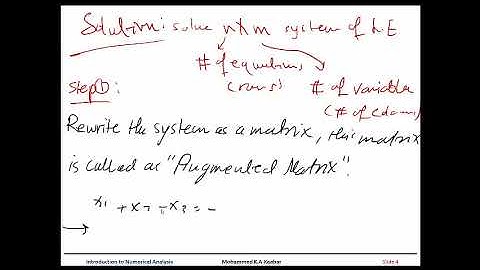 Solution: solve nxm system of L.E
# of equations
(rows)
# of variable
(# of column)
Step①:
Rewrite the system as a matrix, this matrix
is called as "Augmented Matrix".
x₁ + x₂ - x₃ = -
Introduction to Numerical Analysis
Mohammed K A Kaabar
Slide 4